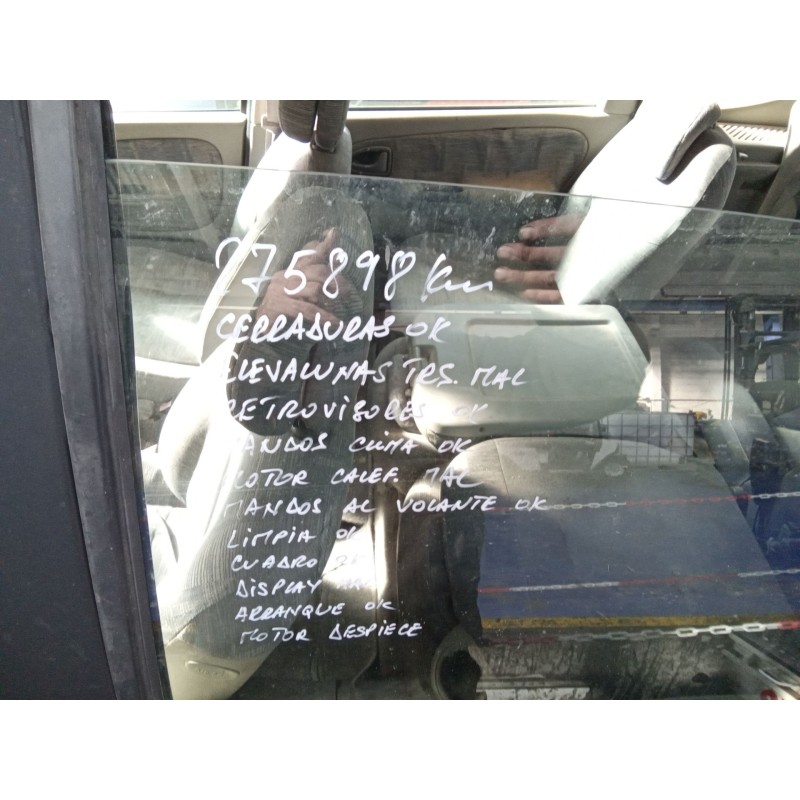 275898 Km
CERRADURAS OK
ELEVALUNAS TRS. MAL
RETROVISORES OK
MANDOS CLIMA OK
MOTOR CALEF. MAL
MANDOS AL VOLANTE OK
LIMPIA OK
CUADRO OK
DISPLAY MAL
ARRANQUE OK
MOTOR DESPIECE